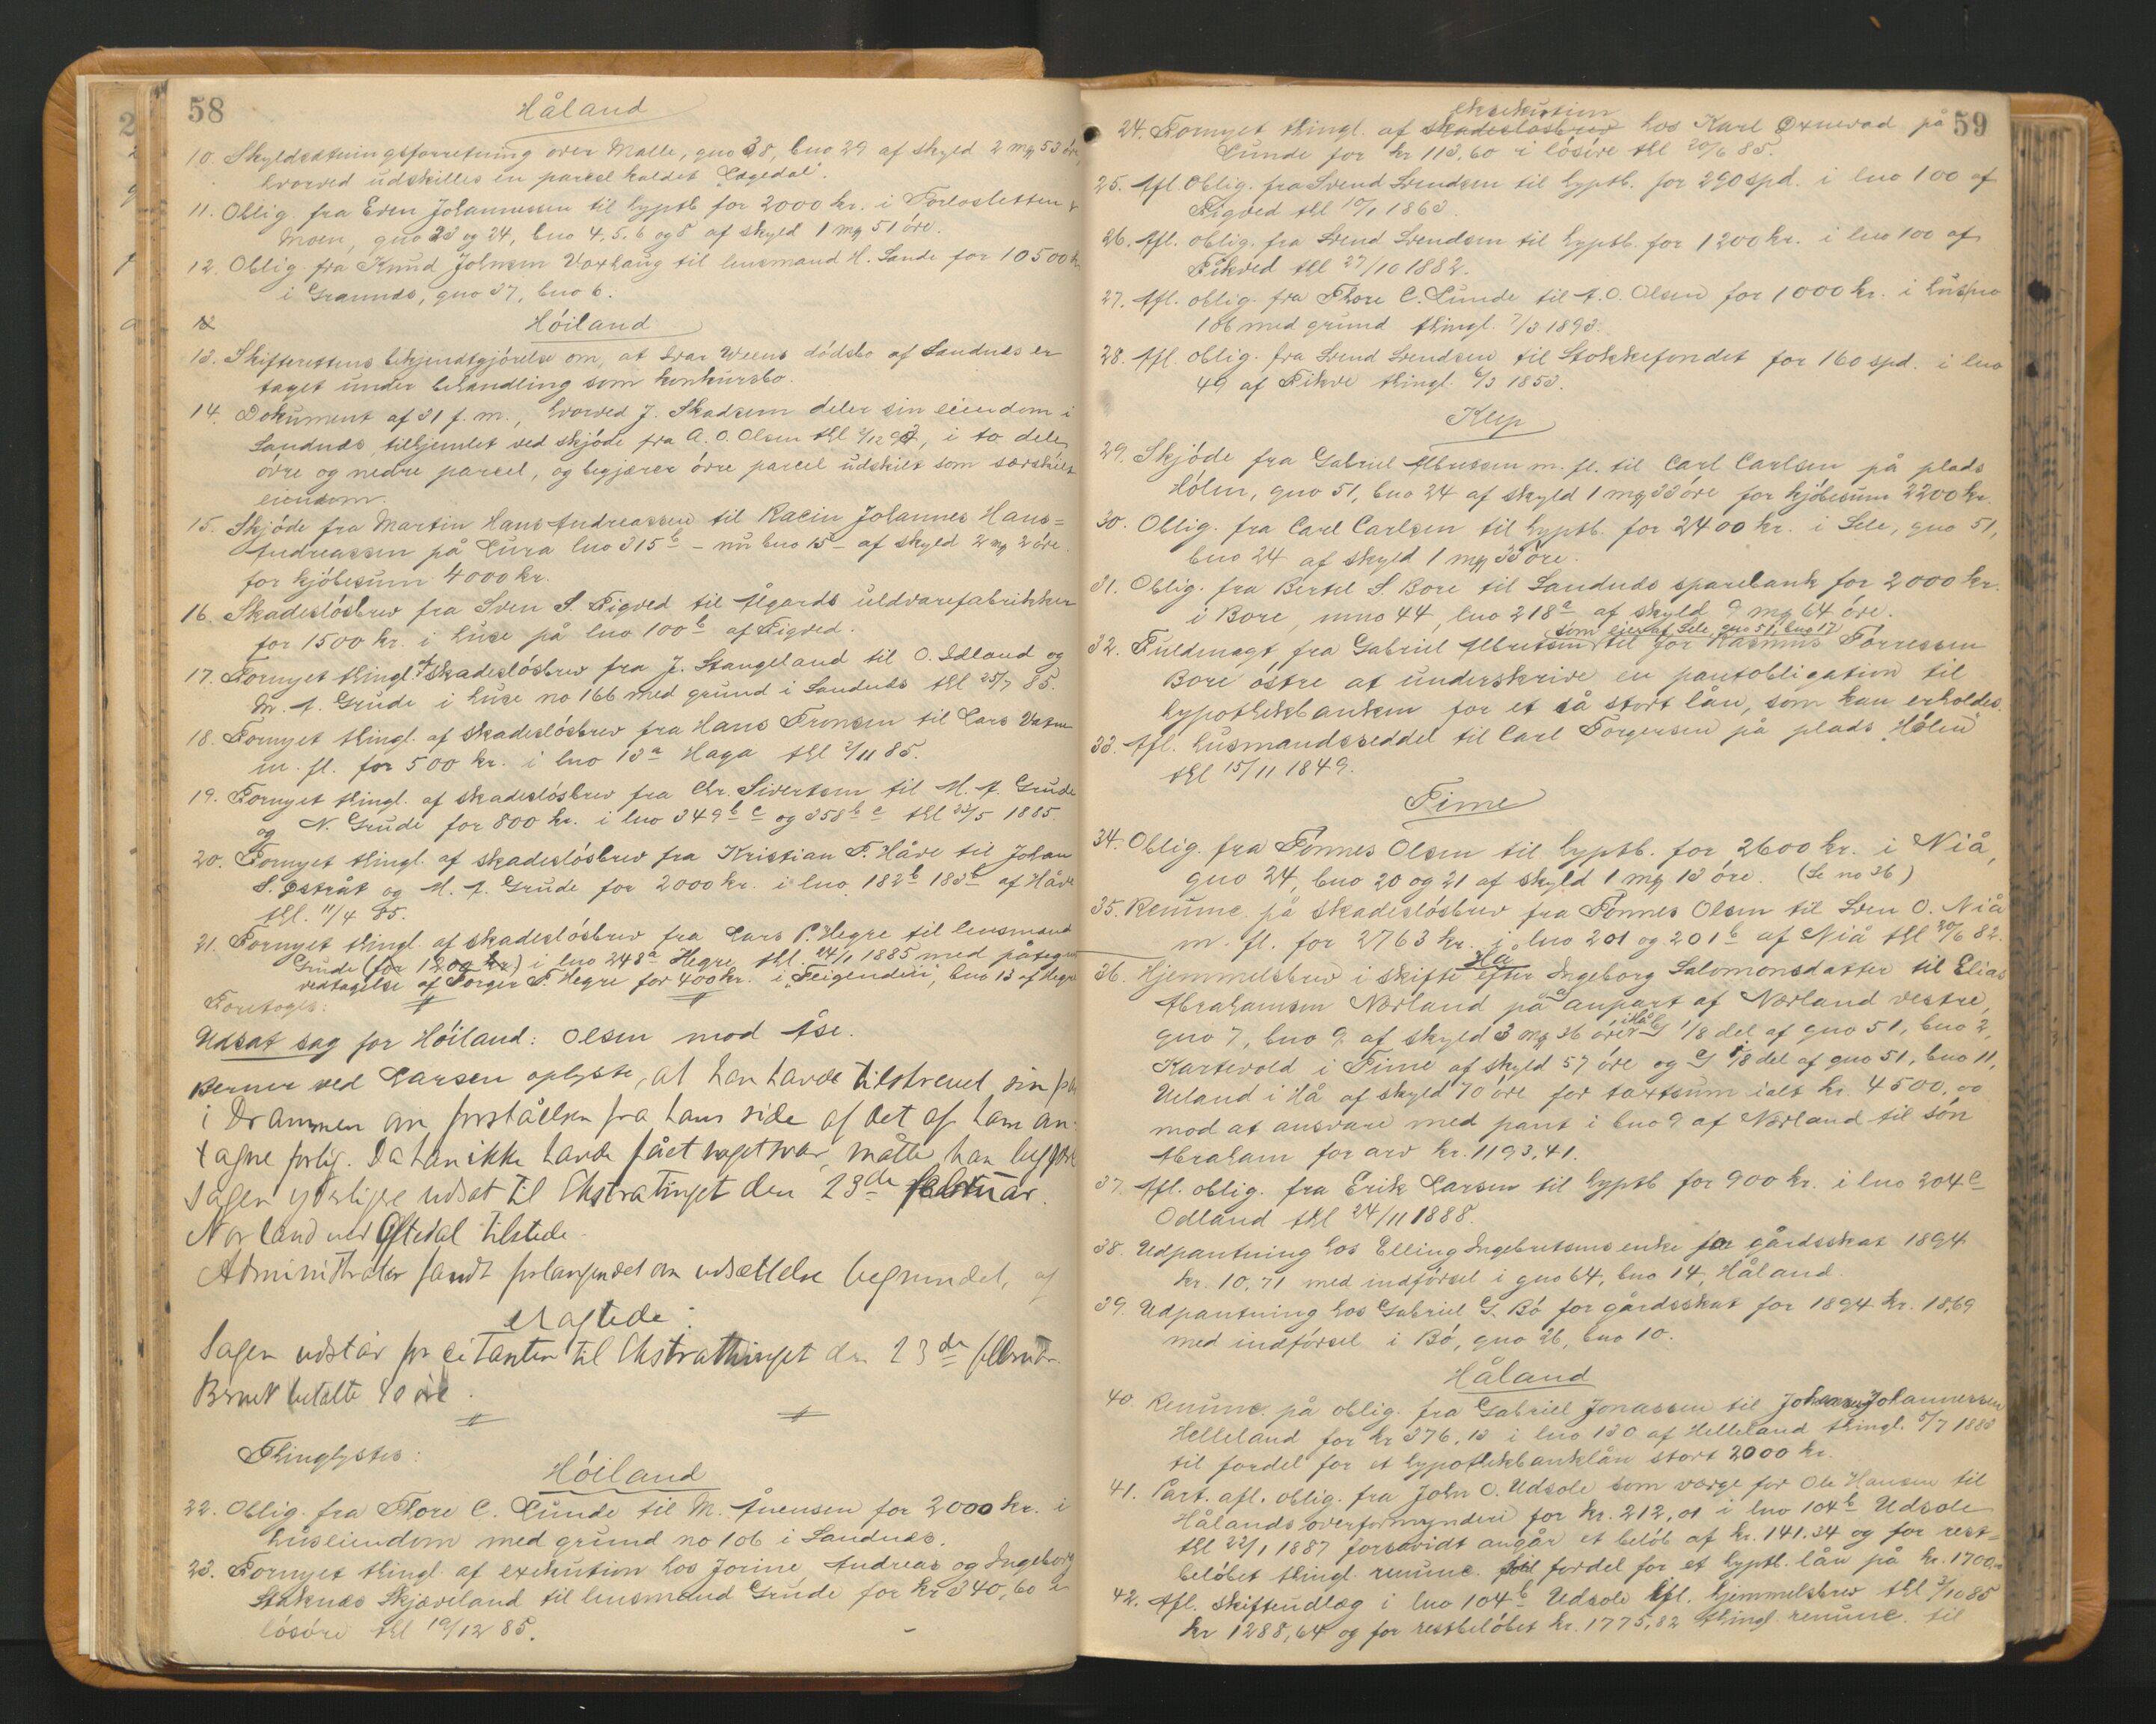 58
Håland
10. Skyldsætningsforretning over Malle, gno 38, bno 29 af skyld 2 mk 53 öre,
hvorved udskilles en parcel kaldet "Lægedal".
11. Oblig. fra Even Johannessen til hyptb for 2000 kr. i
Moen, gno 23 og 24, bno 4, 5, 6 og 8 af skyld 1 mk 51 öre.
12. Oblig. fra Knud Johnsen Voxhaug til lensmand H. Sande for 10500 kr
i Grannæs, gno 37, bno 6.
Höiland
13. Skifterettens bekjendtgjörelse om, at Ivar Weens dödsbo af Sandnæs er
taget under behandling som konkursbo.
14. Dokument af 31 f. m., hvorved J. Skadsem deler sin eiendom i
Sandnæs, tilhjemlet ved skjöde fra A. O. Olsen thl, i to dele
övre og nedre parcel, og begjærer övre parcel udskilt som særskilt
eiendom.
15. Skjöde fra Martin Hans Andreassen til Racin Johannes Hans=
Andreassen på Lura lno 315 b - nu bno 15 - af skyld 2 mk 2 öre
for kjöbesum 4000 kr.
16. Skadeslösbrev fra Sven S. Figved til Ålgårds uldvarefabrikker
for 1500 kr. i huse på lno 100 b af Figved.
17. Fornyet thingl. af skadeslösbrev fra J. Stangeland til O. Idland og
M. A. Grude i huse no 166 med grund i Sandnæs thl 25/7 85.
18. Fornyet thingl. af skadeslösbrev fra Hans Tronsen til Lars Vatne
m. fl. for 500 kr. i lno 13 a Haga thl 2/11 85.
19. Fornyet thingl. af skadeslösbrev fra Chr. Sivertsen til M. A. Grude
og N. Grude for 800 kr. i lno 349 b c og 358 b c thl 23/5 1885.
20. Fornyet thingl. af skadeslösbrev fra Kristian T. Håve til Johan
S. Østråt og M. A. Grude for 2000 kr. i lno 182 b 183 b af Håve
thl. 11/4 85.
21. Fornyet thingl. af skadeslösbrev fra Lars P. Hegre til lensmand
Grude (for 1200 kr) i lno 248 a Hegre, thl. 24/1 1885 med påtegn.
vedtagelse af Torger T. Hegre for 400 kr. i "Teigenderi", bno 13 af Hegre
Foretoges:
Udsat sag for Höiland: Olsen mod Åse.
Berner ved Larsen oplyste, at han havde tilskrevet sin
i Drammen om forståelsen fra hans side af det af ham an-
tagne forlig. Da han ikke havde fået noget svar, måtte han begjære
sagen yderligere udsat til Ekstratinget den 23de februar.
Norland ved Oftedal tilstede.
Administrator fandt forlangendet om udsættelse begrundet, og
eragtede:
Sagen udstår for citanten til Ekstrathinget den 23de februar.
Berner betalte 40 öre.
Thinglystes:
Höiland
22. Oblig. fra Thore C. Lunde til M. Åuensen for 2000 kr. i
huseiendom med grund no 106 i Sandnæs.
23. Fornyet thingl. af exekution hos Jorine, Andreas og Ingeborg
Stoknæs Skjæveland til lensmand Grude for kr 340,60 i
lösöre thl 19/12 85.
59
24. Fornyet thingl. af skadeslösbrev eksekution hos Karl Øxnevad på
Lunde for kr 113,60 i lösöre thl 20/6 85.
25. Afl. Oblig. fra Svend Svendsen til hyptb. for 290 spd. i lno 100 af
Figved thl 10/1 1863.
26. Afl. oblig. fra Svend Svendsen til hyptb. for 1200 kr. i lno 100 af
Fikved thl 27/10 1882.
27. Afl. oblig. fra Thore C. Lunde til A. O. Olsen for 1000 kr. i hus no
106 med grund thingl. 7/3 1893.
28. Afl. oblig. fra Svend Svendsen til Stokkefondet for 160 spd. i lno
49 af Fikve thingl. 6/3 1853.
Klep
29. Skjöde fra Gabriel Albutsen m. fl. til Carl Carlsen på plads
Hólen, gno 51, bno 24 af skyld 1 mk 33 öre for kjöbesum 2200 kr.
30. Oblig. fra Carl Carlsen til hyptb. for 2400 kr. i Sele, gno 51,
bno 24 af skyld 1 mk 33 öre.
31. Oblig. fra Bertel S. Bore til Sandnæs sparebank for 2000 kr.
i Bore, mno 44, lno 218 a af skyld 9 mk 64 öre.
som eier af Sele gno 51, bno 17
32. Fuldmagt fra Gabriel Albretsen til for Rasmus Torressen
Bore östre at underskrive en pantobligation til
hypothekbanken for et så stort lån, som kan erholdes.
33. Afl. husmandsseddel til Carl Torgersen på plads "Hólen"
thl 15/11 1849.
Time
34. Oblig. fra Tönnes Olsen til hyptb. for 2600 kr. i Niå,
gno 24, bno 20 og 21 af skyld 1 mk 13 öre. (Se no 36)
35. Renunc. på skadeslösbrev fra Tönnes Olsen til Sven O. Niå
m. fl. for 2763 kr. i lno 201 og 201 b af Niå thl 20/6 82.
Hå
36. Hjemmelsbrev i skifte efter Ingeborg Salomonsdatter til Elias
Abrahamsen Nærland på a) anpart af Nærland vestre,
gno 7, bno 9 af skyld 3 mk 36 öre i Hå b) 1/8 del af gno 51, bno 2,
Kartevold i Time af skyld 57 öre og c) 1/8 del af gno 51, bno 11,
Ueland i Hå af skyld 70 öre for taxtsum ialt kr. 4500, og
mod at ansvare med pant i bno 9 af Nærland til sön
Abraham for arv kr. 1193,41.
37. Afl. oblig. fra Erik Larsen til hyptb for 900 kr. i lno 204 c
Odland thl 24/11 1888.
38. Udpantning hos Elling Ingebretsens enke for gårdsskat 1894
kr. 10,71 med indförsel i gno 64, bno 14, Håland.
39. Udpantning hos Gabriel G. Bö for gårdsskat for 1894 kr. 18,69
med indförsel i Bö, gno 26, bno 10.
Håland
40. Renunc. på oblig. fra Gabriel Jonassen til Johannes Johannessen
Helleland for kr 376,13 i lno 130 af Helleland thingl. 5/7 1883
til fordel for et hypothekbanklån stort 2000 kr.
41. Part. afl. oblig. fra John O. Udsole som værge for Ole Hansen til
Hålands overformynderi for kr. 212,01 i lno 104 b Udsole
thl 22/1 1887 forsåvidt angår et belöb af kr. 141.34 og for rest=
belöbet thingl. renunc. til fordel for et hyptb. lån på kr. 1700,
42. Afl. Skifteudlæg i lno 104 b Udsole ifl. hjemmelsbrev thl 3/10 85
kr 1288,64 og for restbelöbet kr. 1775,82 thingl. renunc. til